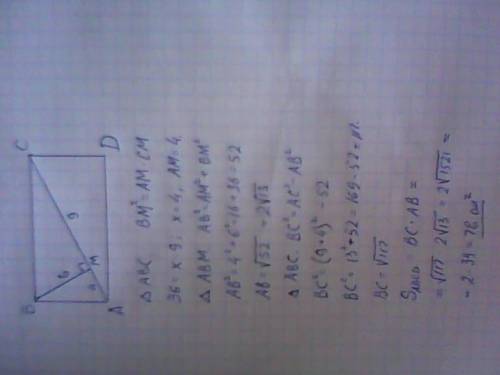 B C
6 9
4 M
A D
△ ABC BM² = AM · CM
36 = x · 9; x = 4, AM = 4.
△ ABM AB² = AM² + BM²
AB² = 4² + 6² = 16 + 36 = 52
AB = √52 = 2√13
△ ABC. BC² = AC² - AB²
BC² = (9+4)² - 52
BC² = 13² - 52 = 169 - 52 = 117.
BC = √117
SABCD = BC · AB =
= √117 · 2√13 = 2√1521 =
= 2 · 39 = 78 см²